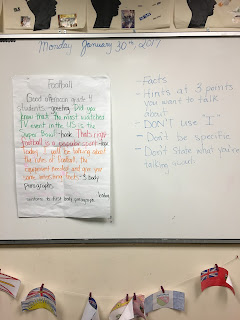 Monday January 30th, 2017
Football
Good afternoon grade 4
students. greeting Did you
know that the most watched
TV event in the US is the
Super Bowl? -hook That's why
football is a popular sport
Today I will be talking about
the rules of football, the
equipment needed and give you
some interesting facts. - 3 body
paragraphs
- Facts
- Hints at 3 points
you want to talk
about
- DON'T use "I"
- Don't be specific
- Don't state what you're
talking about